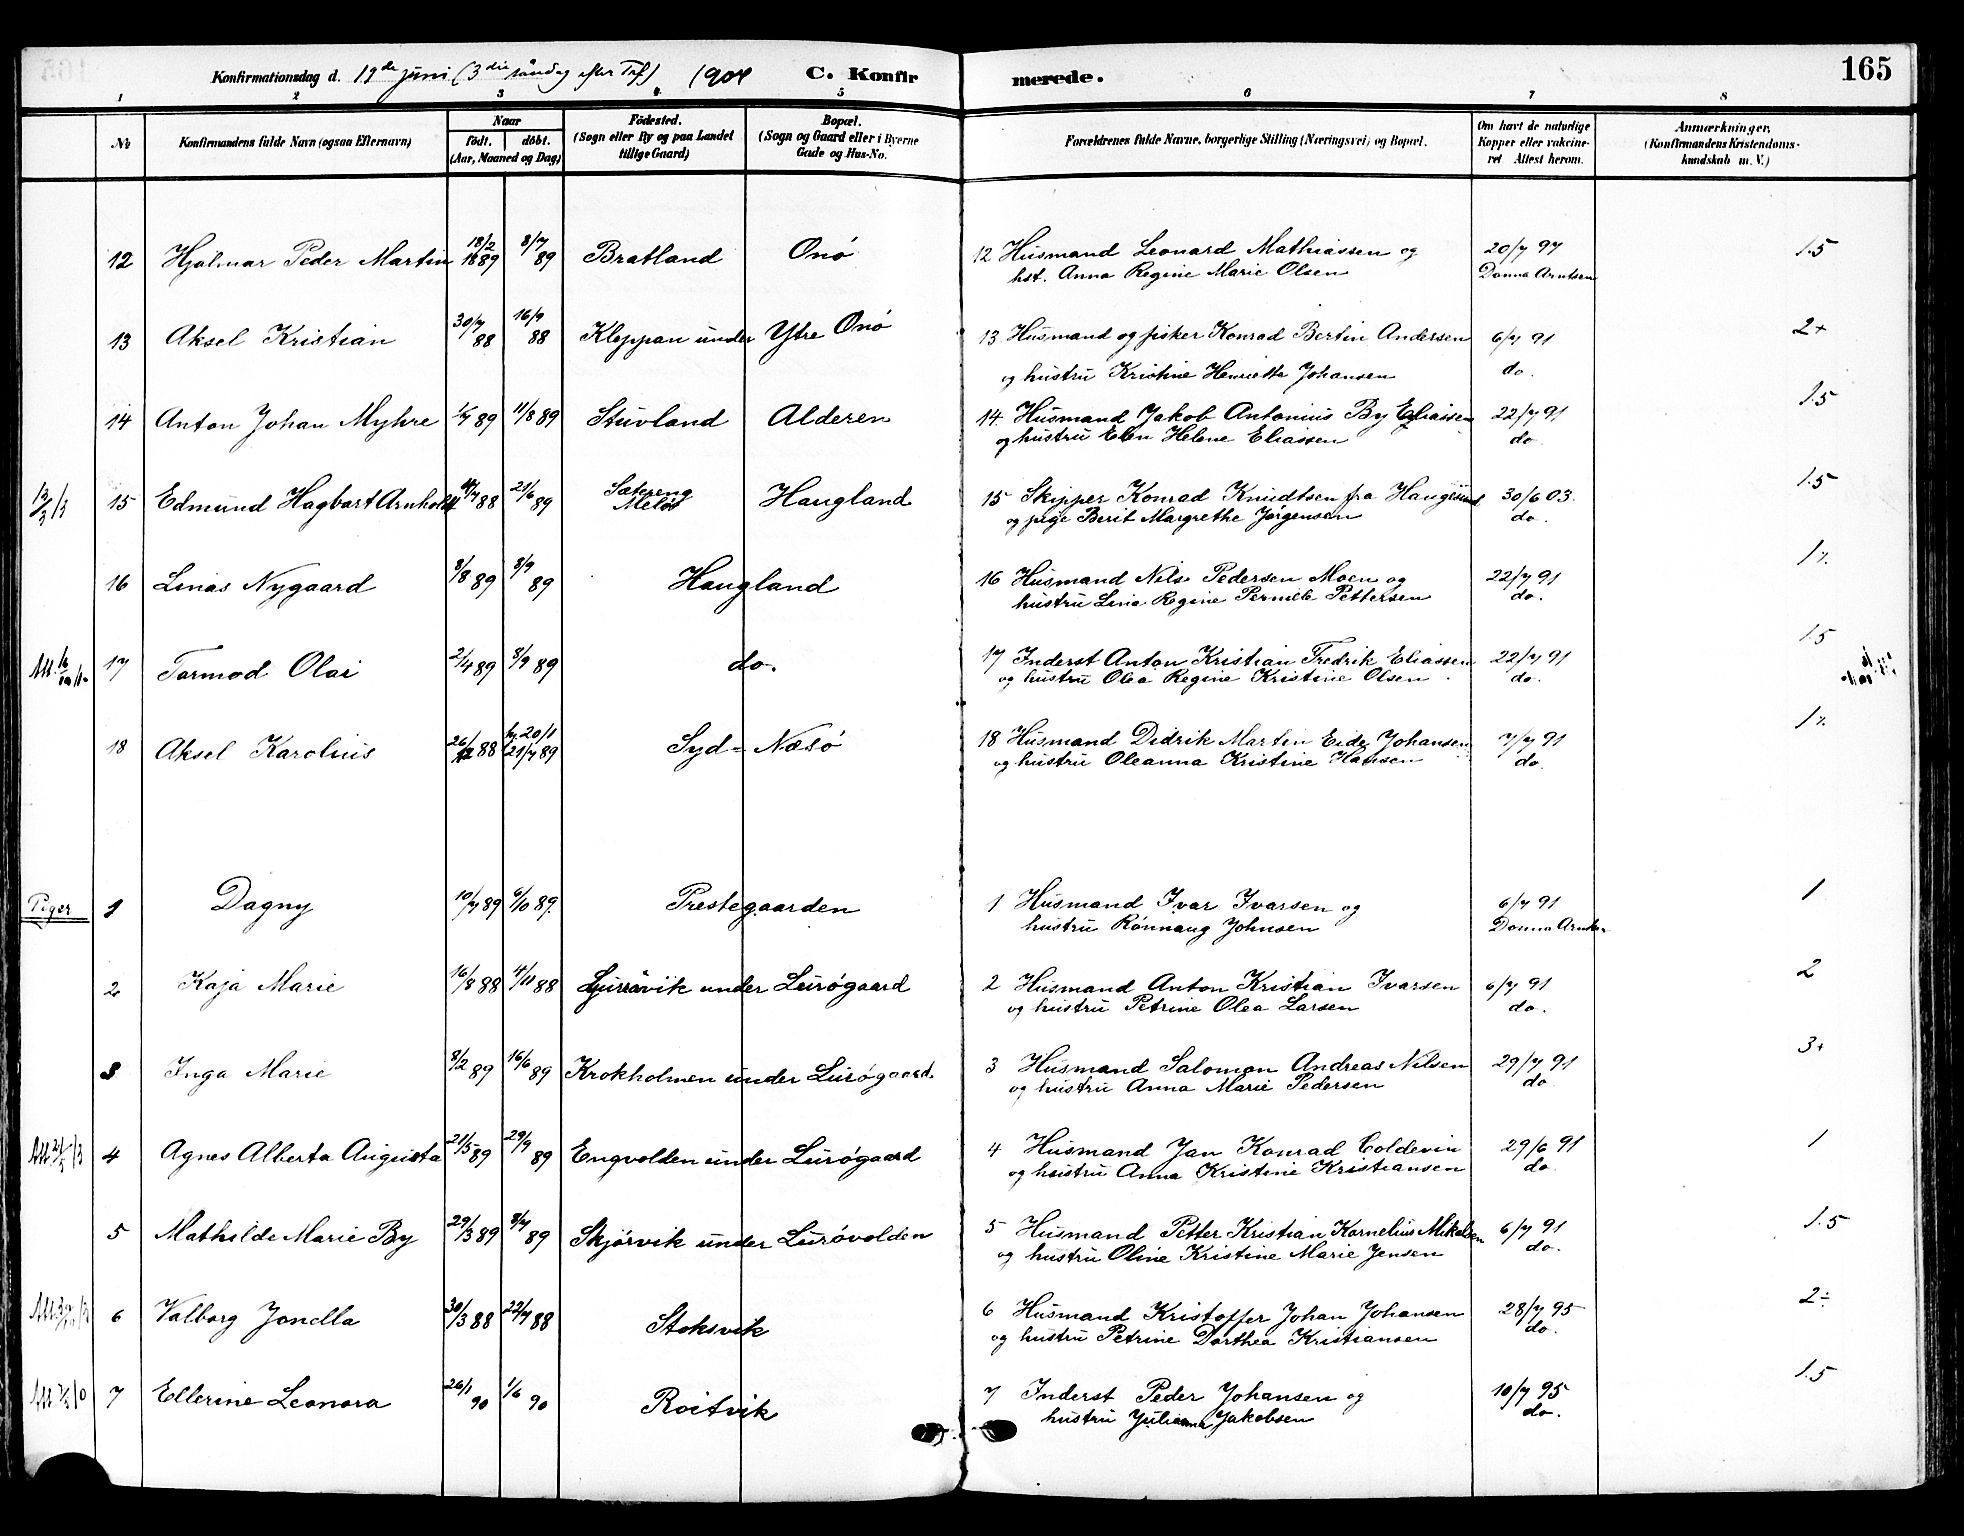 Konfirmationsdag d. 19de juni (3die søndag efter Tref) 1904 C. Konfirmerede. 165
1 2 3 4 5 6 7 8
No
Konfirmandens fulde Navn (ogsaa Efternavn)
Naar
födt. döbt.
(Aar, Maaned og Dag)
Födested.
(Sogn eller By og paa Landet
tillige Gaard)
Bopæl.
(Sogn og Gaard eller i Byerne
Gade og Hus-No.
Forældrenes fulde Navne, borgerlige Stilling (Næringsvei) og Bopæl.
Om havt de naturlige
Kopper eller vaccine-
ret Attest herom.
Anmærkninger,
(Konfirmandens Kristendoms-
kundskab m. V.)
12 Hjalmar Peder Martin 18/2 1889 8/7 89 Bratland Onø 12 Husmand Leonard Mathiassen og 20/7 97 1.5
hst. Anna Regine Marie Olsen Donna Arntsen
13 Aksel Kristian 30/7 88 16/9 88 Kleppan under Ytre Onø 13 Husmand og fisker Konrad Bertin Andersen 6/7 91 2+
og hustru Kristine Henrietta Johansen do.
14 Anton Johan Myhre 1/7 89 11/8 89 Stuvland Alderen 14. Husmand Jakob Antonius By Eliassen 22/7 91 1.5
og hustru Elen Helene Eliassen do.
15 Edmund Hagbart Arnholdt 88 21/6 89 Sætereng Haugland 15 Skipper Konrad Knudtsen fra Haugesund 30/6 03. 1.5
Meløs og pige Berit Margrethe Jørgensen do.
16 Linas Nygaard 8/8 89 8/9 89 Haugland 16 Husmand Nils Pedersen Moen og 22/7 91 1÷
hustru Lina Regine Pernille Pettersen do.
17 Tormod Olai 2/4 89 8/9 89 do. 17 Inderst Anton Kristian Fredrik Eliassen 22/7 91 1.5
og hustru Olea Regine Kristine Olsen do.
18 Aksel Karolius 26/12 88 hj. 20/1 21/7 89 Syd-Næsø 18 Husmand Didrik Martin Eide Johansen 7/7 91 1÷
og hustru Oleanna Kristine Hansen do.
Piger 1 Dagny 10/7 89 6/10 89. Prestegaarden 1 Husmand Ivar Ivarsen og 6/7 91 1
hustru Rønnaug Johnsen Donna Arntsen
2 Kaja Marie 16/8 88 4/11 88 Lurøvik under Lurøgaard 2 Husmand Anton Kristian Ivarsen 6/7 91 2
og hustru Petrine Olea Larsen do.
3 Inga Marie 8/2 89 16/6 89 Krokholmen under Lurøgaard. 3 Husmand Salomon Andreas Nilsen 29/7 91 3+
og hustru Anna Marie Pedersen do
4 Agnes Alberta Augusta 21/5 89 29/9 89 Engvolden under Lurøgaard 4 Husmand Jan Konrad Coldevin 29/6 91 1
og hustru Anna Kristine Kristiansen do.
5 Mathilde Marie By 29/3 89 8/7 89 Skjørvik under Lurøvolden 5 Husmand Petter Kristian Kornelius Mikalsen 6/7 91 1.5
og hustru Oline Kristine Marie Jensen do.
6 Valborg Jonella 30/3 88 22/7 88 Stoksvik 6 Husmand Kristoffer Johan Johansen 28/7 95 2÷
og hustru Petrine Dorthea Kristiansen do.
7 Ellerine Leonora 26/1 90 1/6 90 Roitvik 7 Inderst Peder Johansen og 10/7 95 1.5
hustru Julianna Jakobsen do.